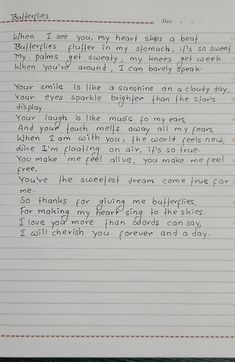 Butterflies
Date
When I see you, my heart skips a beat
Butterflies flutter in my stomach, it's so sweet
My palms get sweaty, my knees get week
When you're around, I can barely speak.
Your smile is like a sunshine on a cloudy day,
Your eyes sparkle brighter than the star's
display.
Your laugh is like music to my ears,
And your touch melts away all my fears.
When I am with you, the world feels new,
Like I'm floating on air, it's so true.
You make me feel alive, you make me feel
free,
You're the sweetest dream come true for
me.
So thanks for giving me butterflies,
For making my heart sing to the skies.
I love you more than words can say,
I will cherish you forever and a day.